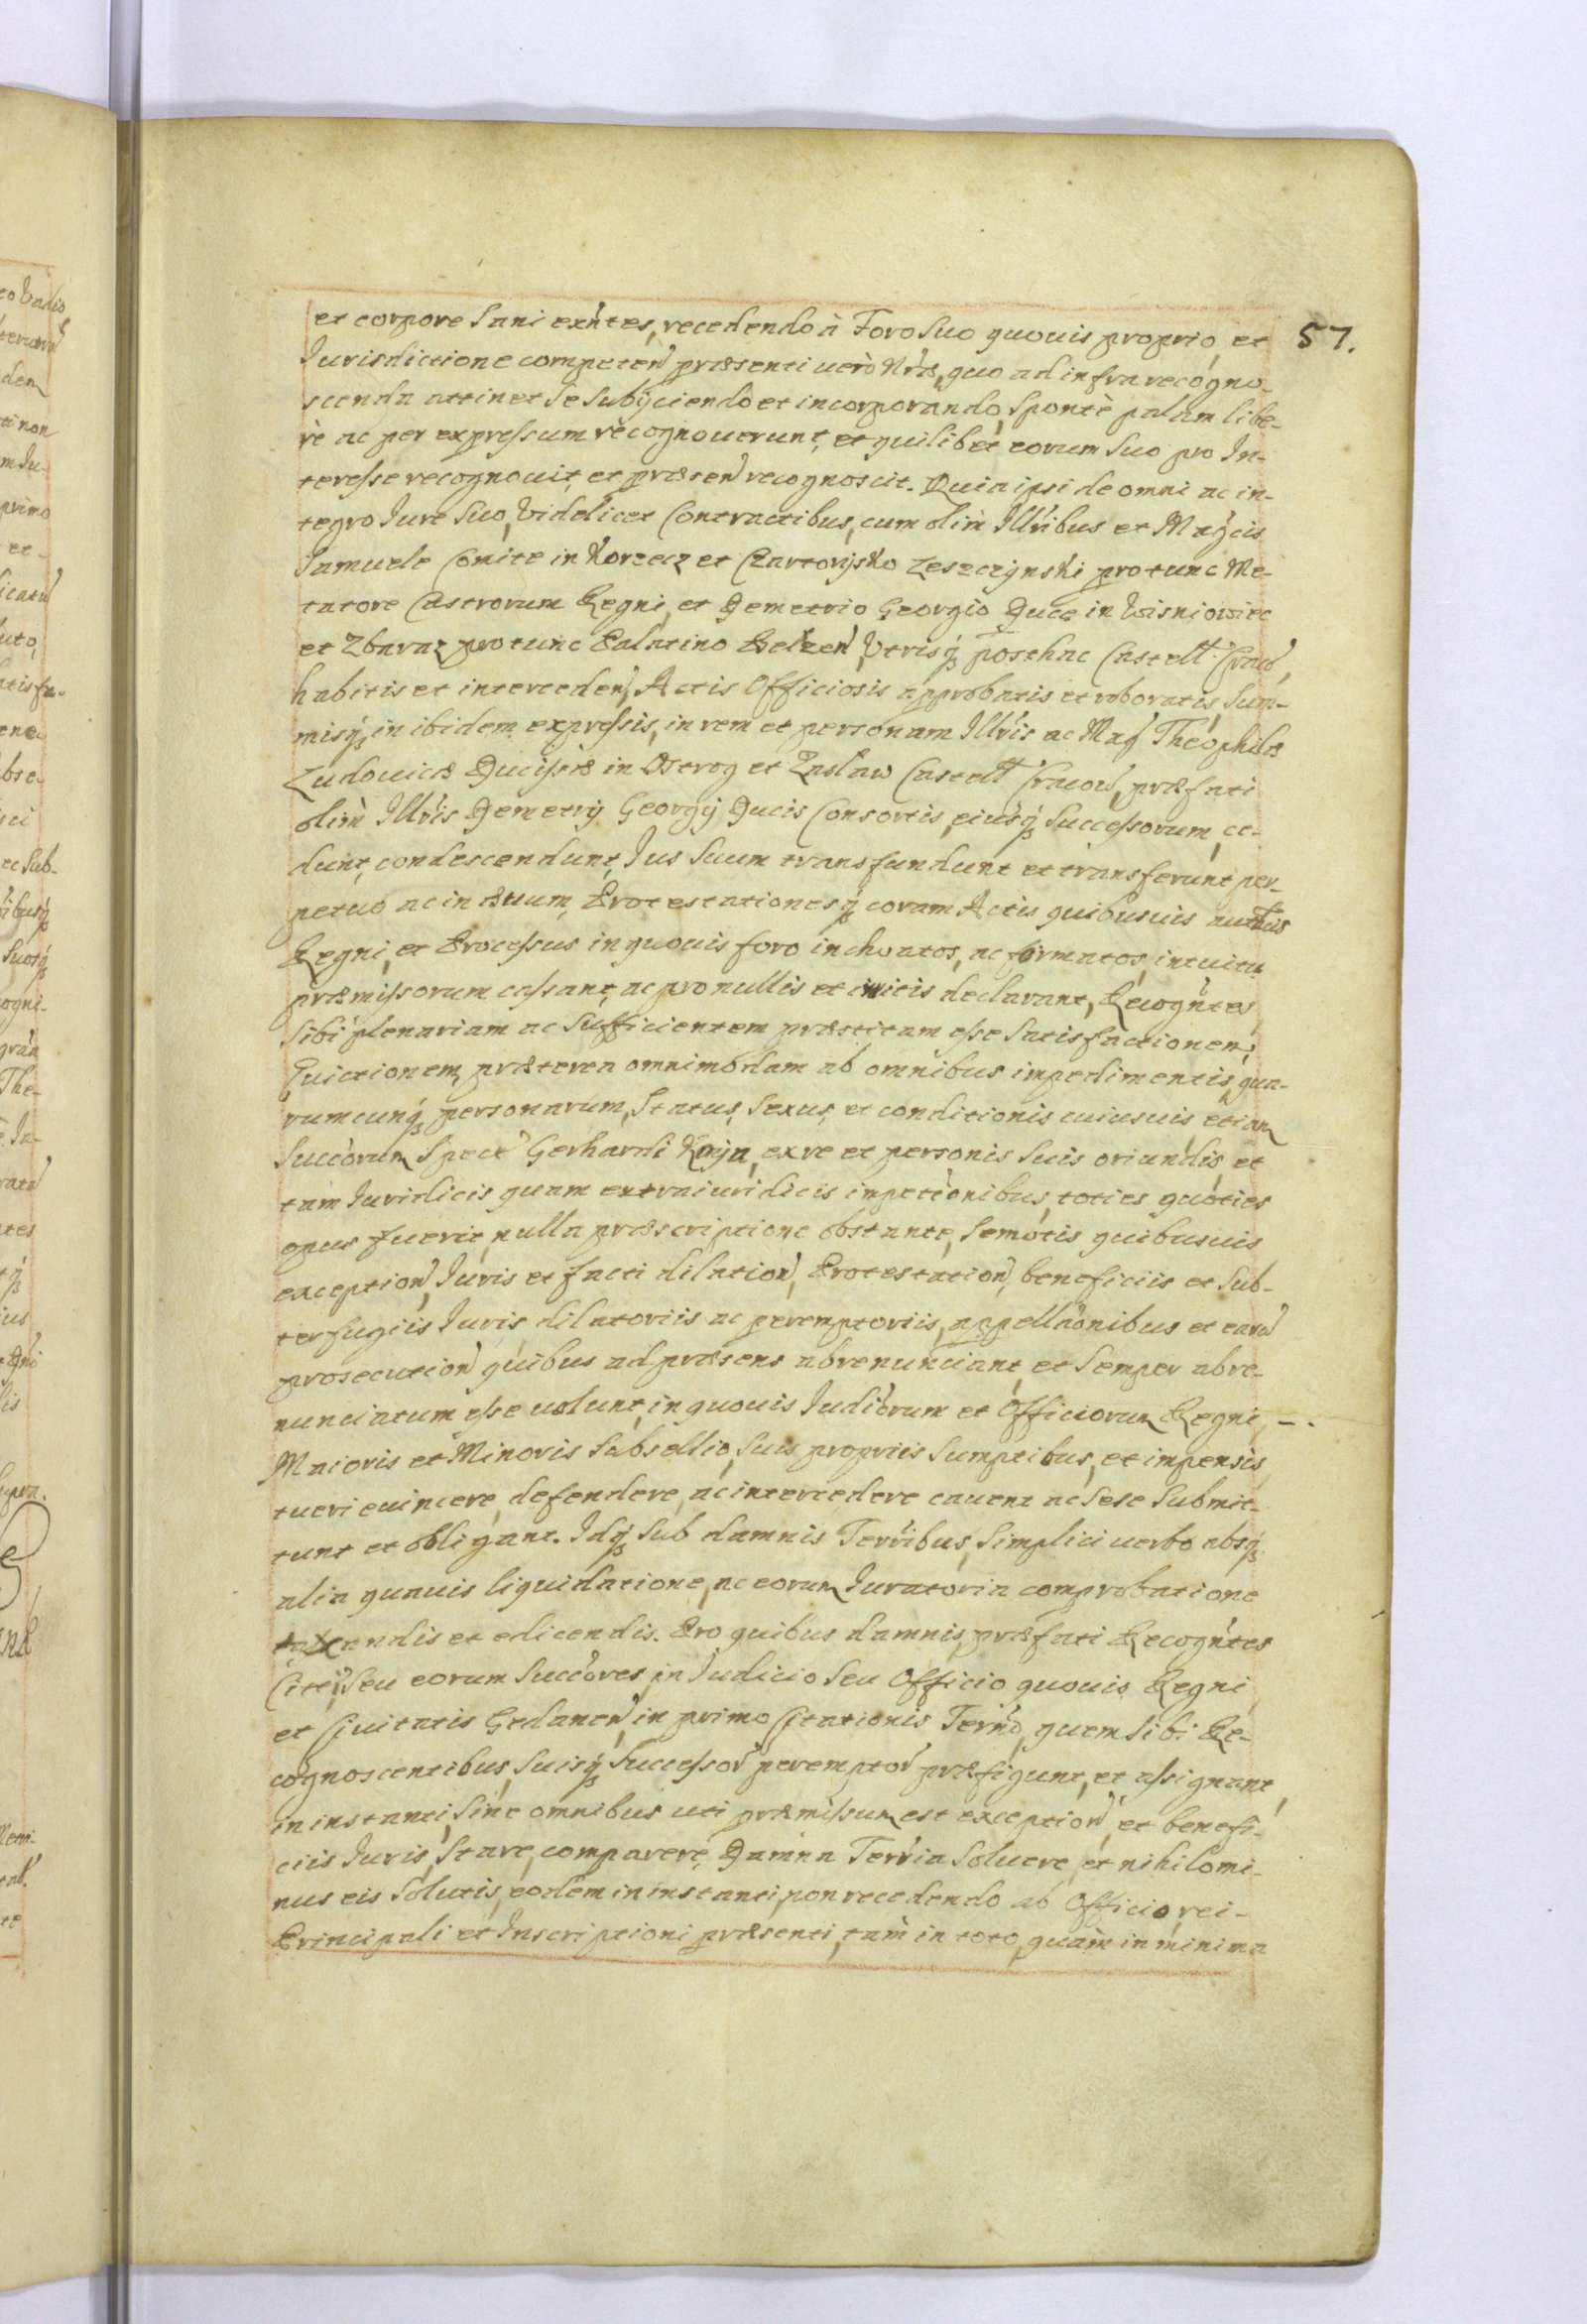 57.
et corpore Sani exntes, recedendo à Foro Suo quouis proprio, et
Jurisdictione competen̄ præsenti verò Nræ, quo ad infra recogno-
scenda attinet Se Subijciendo et incorporando, Spontè palàm libe-
rè ac per expressum recognouerunt, et quilibet eorum Suo pro In-
teresse recognouit, et præsen̄ recognoscit. Quia ipsi de omni ac in-
tegro Jure Suo, Videlicet Contractibus, cum olim Illribus et Magcis
Samuele Comite in Korzecz et Czartoryjsko Leszczynski protunc Me-
tatore Castrorum Regni, et Demetrio Georgio Duce in Wisniowiec
et Zbaraz protunc Palatino Belzen, Vtrisq́ posthac Castell: Crac,
habitis et interceden, Actis Officiosis approbatis et roboratis, Sum-
misq́ in ibidem expressis, in rem et personam Illris ac Mag Theophilæ
Ludouicæ Ducissæ in Ostrog et Zaslaw Castell Cracou, præfati
olim Illris Demetrij Georgij Ducis Consortis, eiusq́ Successorum, ce-
dunt, condescendunt, Jus Suum transfundunt et transferunt per-
petuo ac in æuum, Protestationesq́ coram Actis quibusuis authcis
Regni, et Processus in quouis foro inchoatos, ac formatos, intuitu
præmissorum cassant, ac pro nullis et initis declarant, Recogntes
Sibi plenariam ac Sufficientem præstitam esse Satisfactionem,
Euictionem, præterea omnimodam ab omnibus impedimentis, qua-
rumcunq́ personarum, Status, Sexus, et conditionis cuiusuis etiam
Succorum Spect Gerhardi Kayn, ex re et personis Suis oriundis, et
tam Juridicis quam extraiuridicis impetionibus, toties quoties
opus fuerit, nulla præscriptione obstante, Semotis quibusuis
exception, Juris et facti dilation, Protestation, beneficiis et Sub-
terfugiis Juris dilatoriis ac peremptoriis, appellaonibus et earu
prosecution quibus ad præsens abrenunciant, et Semper abre-
nunciatum esse uolunt, in quouis Judiorum et Officiorum Regni, -.
Maioris et Minoris Subsellio, Suis propriis Sumptibus, et impensis
tueri euincere, defendere, ac intercedere cauent ac Sese Submit-
tunt et obligant. Idq́ Sub damnis Terribus, Simplici uerbo absq́
alia quauis liquidatione, ac eorum Juratoria comprobatione
taxandis et edicendis. Pro quibus damnis, præfati Recogntes
Citi, Seu eorum Succores, in Judicio Seu Officio quouis Regni
et Ciuitatis Gedanen, in primo Citationis Termo, quem Sibi Re-
cognoscentibus, Suisq́ Successor peremptor præfigunt, et assignant,
in instanti, Sine omnibus uti præmissum est exception, et benefi-
ciis Juris, Stare, comparere, Damna Terria Soluere, et nihilomi-
nus eis Solutis, eodem in instanti, non recedendo ab Officio, rei-
Principali et Inscriptioni præsenti, tam in toto, quàm in minima